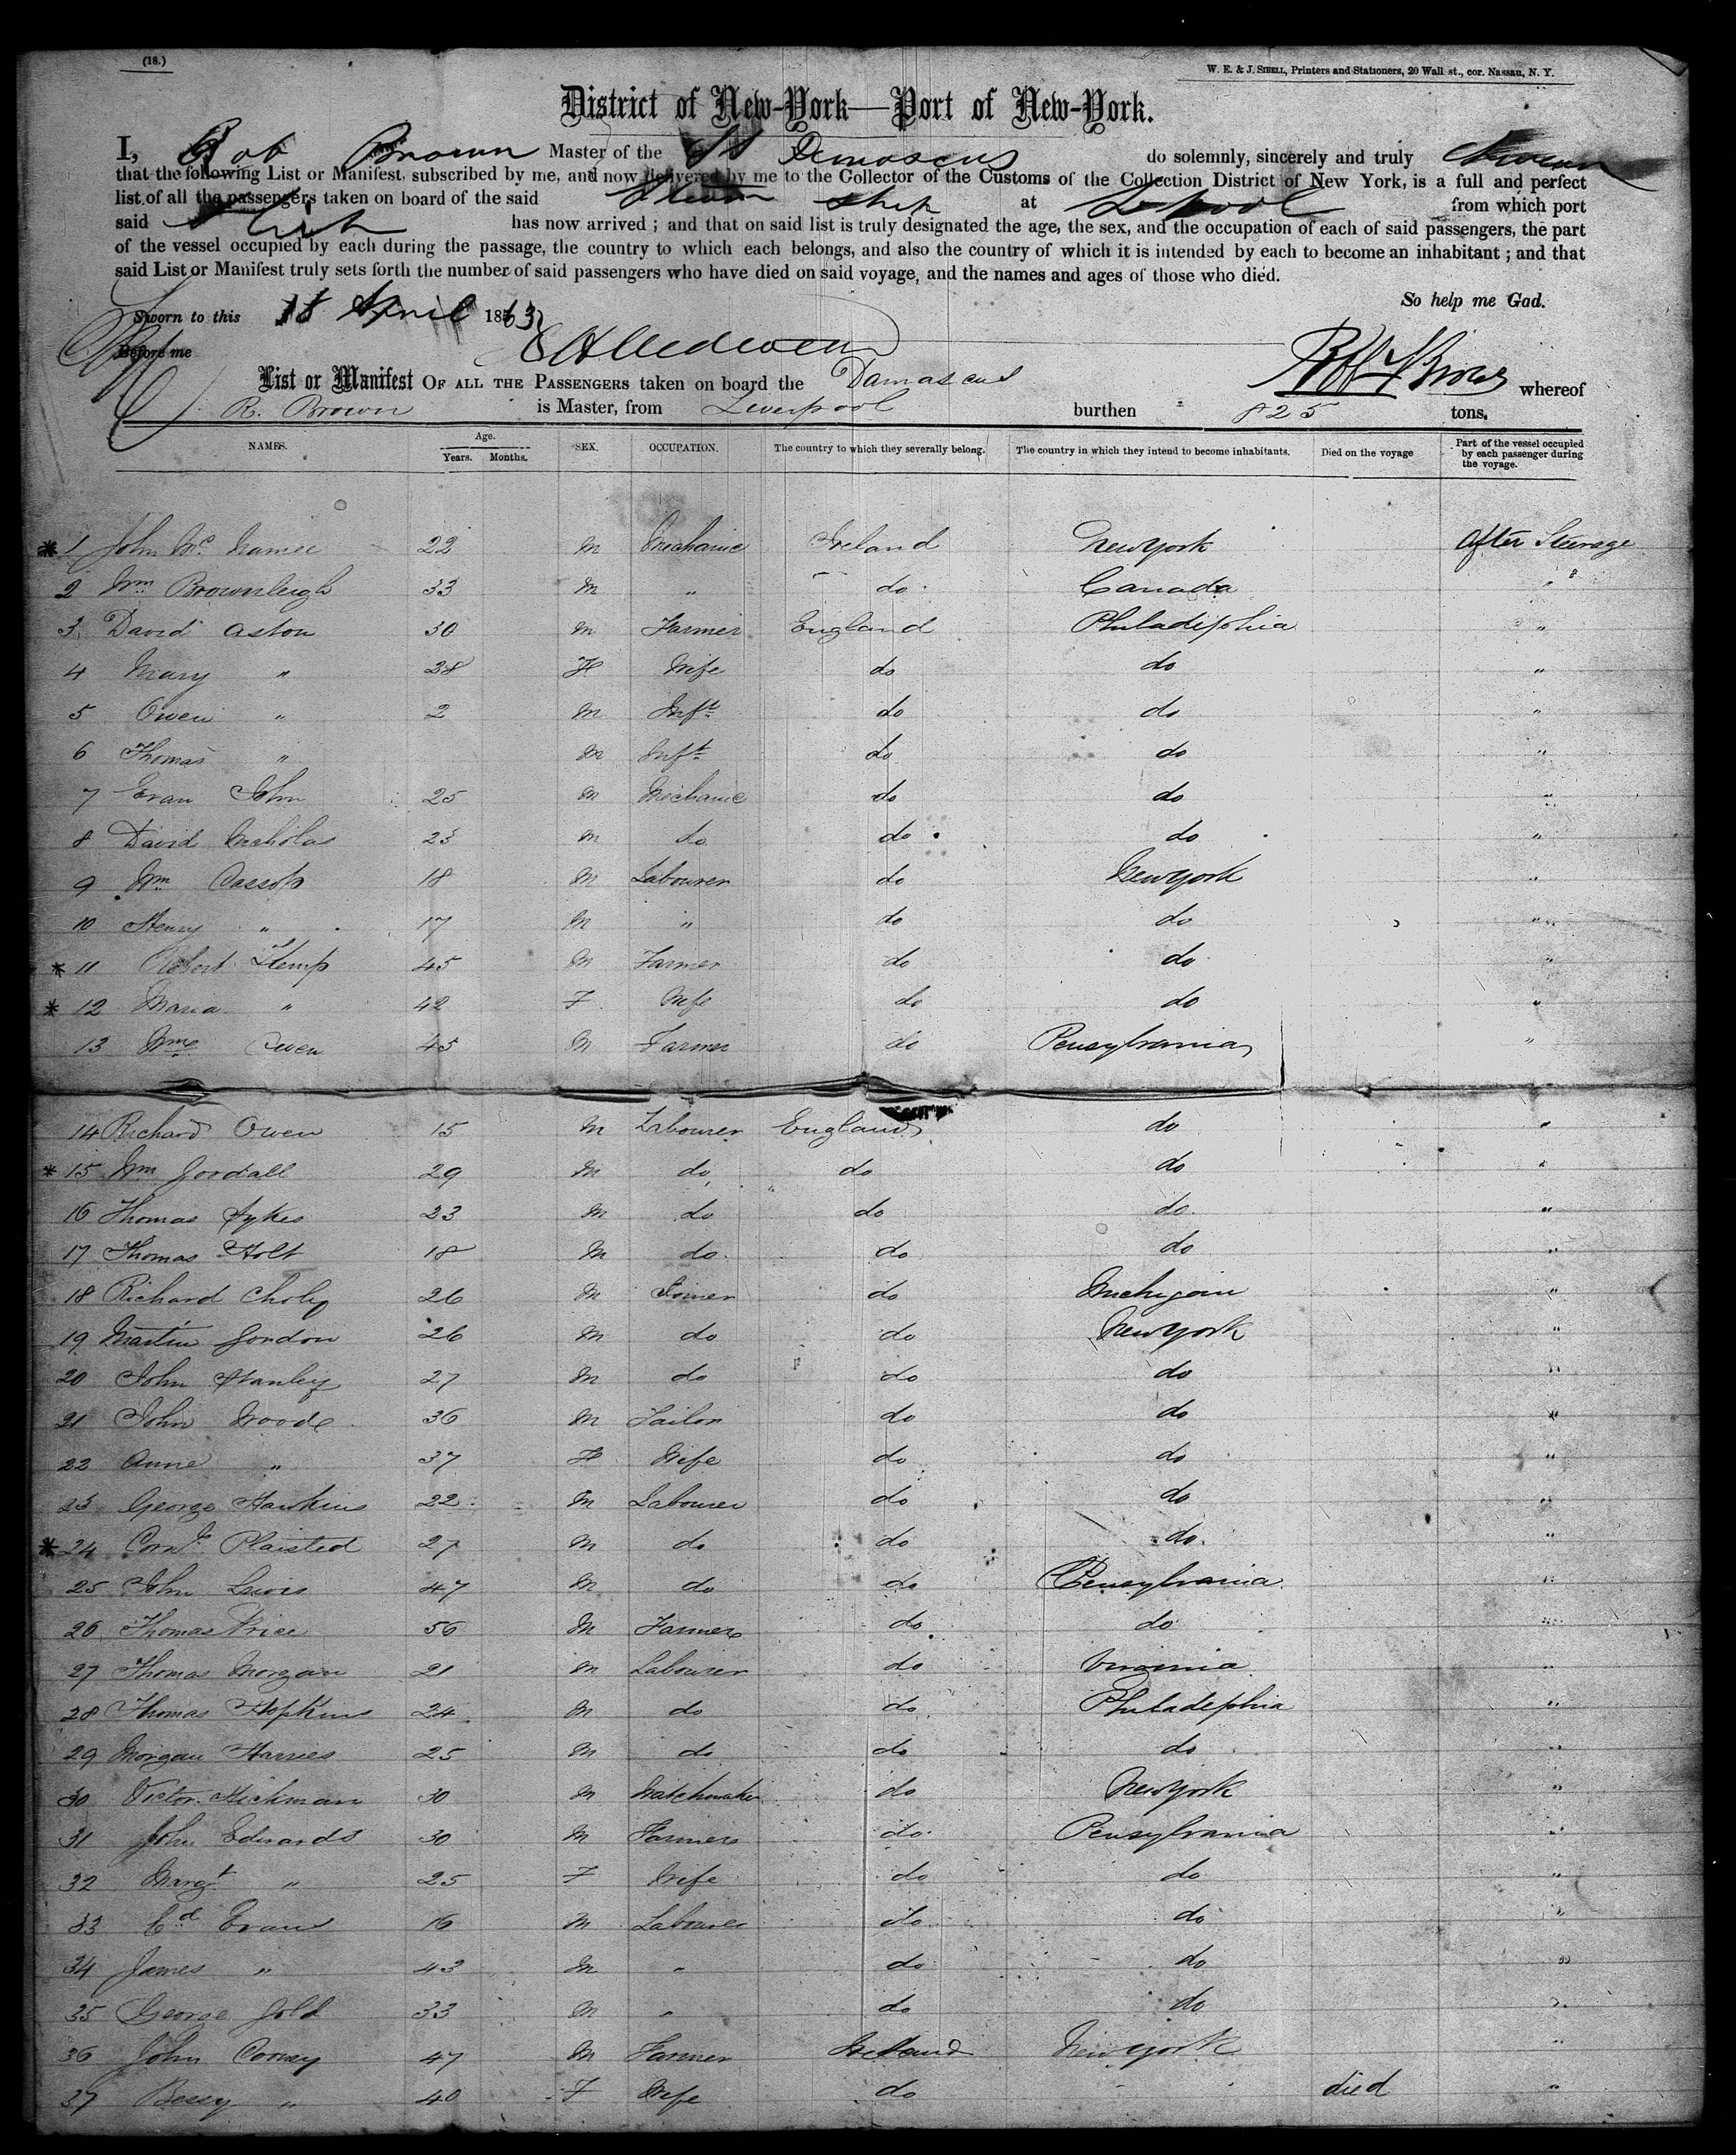 (18.)
W. E. & J. SIBELL, Printers and Stationers, 20 Wall st., cor. Nassau, N. Y.
District of New-York—Port of New-York.
I, Rob Brown Master of the SS Damascus do solemnly, sincerely and truly Swear
that the following List or Manifest, subscribed by me, and now delivered by me to the Collector of the Customs of the Collection District of New York, is a full and perfect
list of all the passengers taken on board of the said Steam Ship at L'pool from which port
said Ship has now arrived ; and that on said list is truly designated the age, the sex, and the occupation of each of said passengers, the part
of the vessel occupied by each during the passage, the country to which each belongs, and also the country of which it is intended by each to become an inhabitant ; and that
said List or Manifest truly sets forth the number of said passengers who have died on said voyage, and the names and ages of those who died.
So help me God.
Sworn to this 18 April 1863
Before me
List or Manifest OF ALL THE PASSENGERS taken on board the Damascus whereof
R. Brown is Master, from Liverpool burthen 825 tons.
NAMES. Age. Years. Months. SEX. OCCUPATION. The country to which they severally belong. The country in which they intend to become inhabitants. Died on the voyage Part of the vessel occupied by each passenger during the voyage.
* 1 John Mc Namee 22 M Mechanic Ireland New york After Steerage
2 Wm Brownleigh 33 M " do Canada "
3 David Aston 30 M Farmer England Philadelphia "
4 Mary " 28 F Wife do do "
5 Owen " 2 M Inft do do "
6 Thomas " M Inft do do "
7 Evan John 25 M Mechanic do do "
8 David Nicholas 23 M do do do "
9 Wm 18 M Labourer do New york "
10 Henry " 17 M " do do "
* 11 Robert Kemp 45 M Farmer do do "
* 12 Maria " 42 F Wife do do "
13 Wm Owen 45 M Farmer do Pensylvania "
14 Richard Owen 15 M Labourer England do "
* 15 Wm Goodall 29 M do do do "
16 Thomas Sykes 23 M do do do "
17 Thomas Holt 18 M do do do "
18 Richard 26 M Joiner do Michigan "
19 Martin Gordon 26 M do do New york "
20 John Stanley 27 M do do do "
21 John Wood 36 M Tailor do do "
22 Anne " 37 F Wife do do "
23 George Hawkins 22 M Labourer do do "
* 24 Plaisted 27 M do do do "
25 John Lewis 47 M do do Pensylvania "
26 Thomas Price 56 M Farmer do do "
27 Thomas Morgan 21 M Labourer do Virginia "
28 Thomas Hopkins 24 M do do Philadephia "
29 Morgan Harries 25 M do do do "
30 Victor Hickman 30 M Watchmaker do New york "
31 John Edwards 30 M Farmer do Pensylvania "
32 Margt " 25 F Wife do do "
33 Ed Evans 16 M Labourer do do "
34 James " 43 M " do do "
35 George Gold 33 M " do do "
36 John Conway 47 M Farmer Ireland New york "
37 Bessy " 40 F Wife do died "